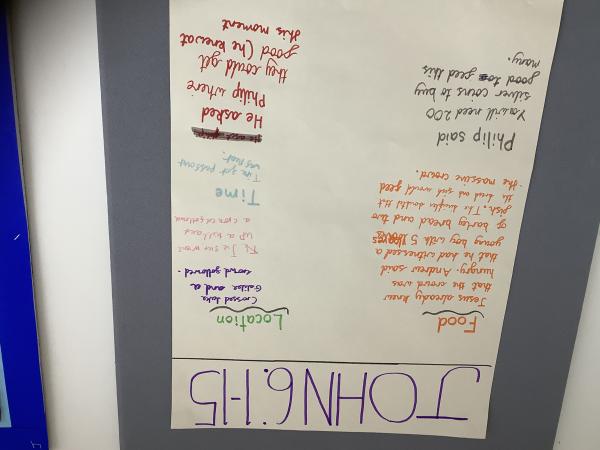 JOHN 6:1-15
Food
Jesus already knew
that the crowd was
hungry. Andrew said
that he had witnessed a
young boy with 5 loaves
of barley bread and two
fish. The that
the bread and fish would feed
the massive crowd.
Philip said
You will need 200
silver coins to buy
food to feed this
many.
Location
Crossed lake
Galilee and a
crowd followed.
went
up a hill and
a crowd followed
Time
passover
was near.
He asked
Philip where
they could get
food (he knew at
this moment